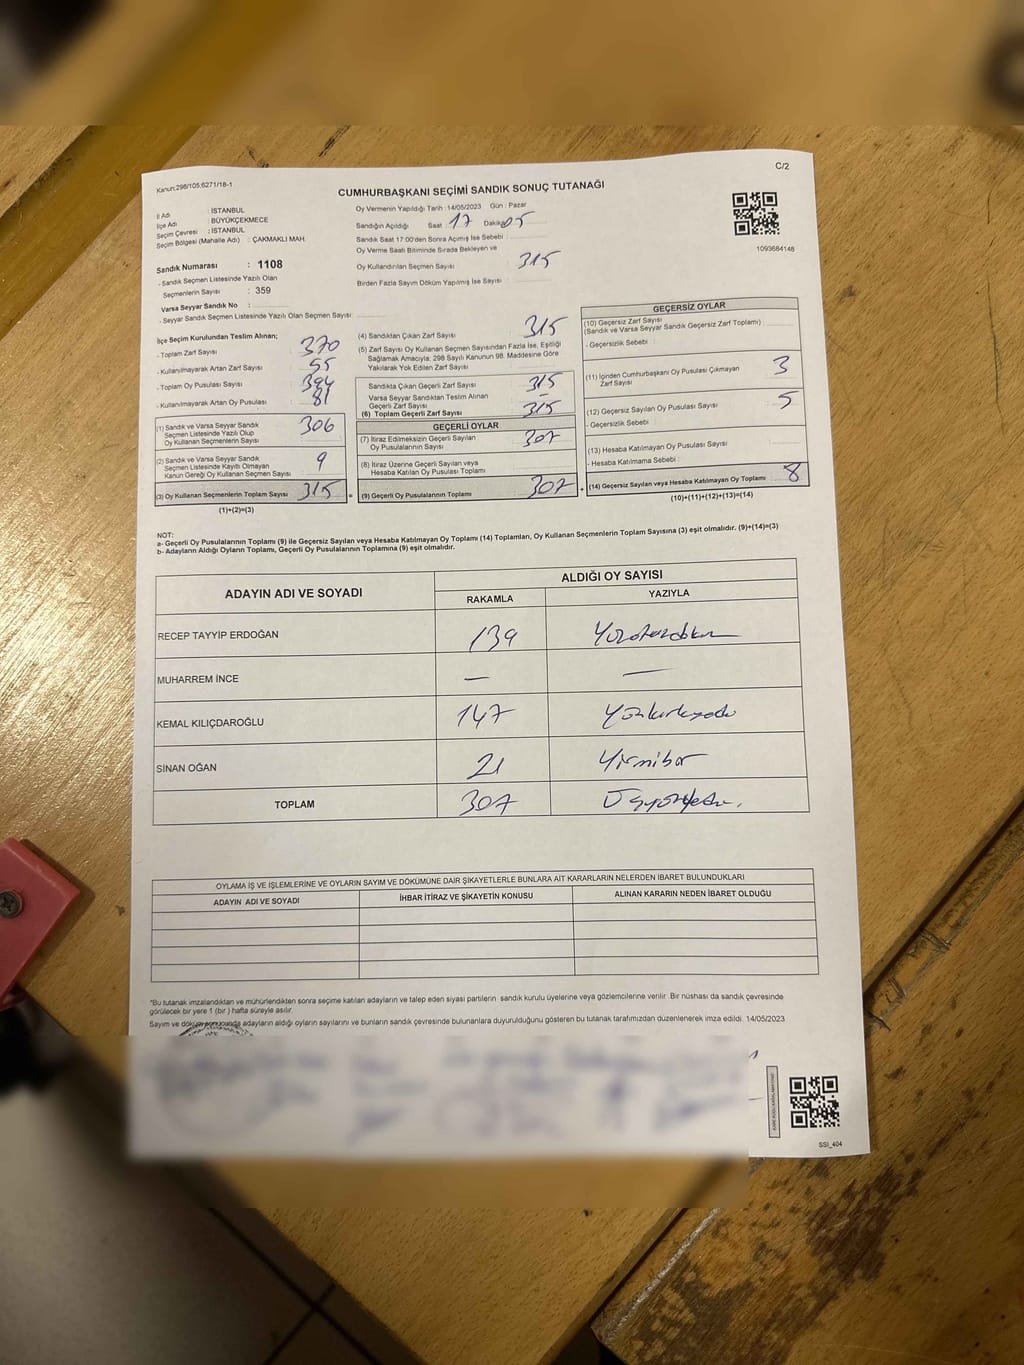 C/2
Kanun:298/105;6271/18-1
CUMHURBAŞKANI SEÇİMİ SANDIK SONUÇ TUTANAĞI
İl Adı : İSTANBUL
İlçe Adı : BÜYÜKÇEKMECE
Seçim Çevresi : İSTANBUL
Seçim Bölgesi (Mahalle Adı) : ÇAKMAKLI MAH.
Sandık Numarası : 1108
- Sandık Seçmen Listesinde Yazılı Olan
Seçmenlerin Sayısı : 359
Varsa Seyyar Sandık No :
- Seyyar Sandık Seçmen Listesinde Yazılı Olan Seçmen Sayısı:
Oy Vermenin Yapıldığı Tarih : 14/05/2023 Gün : Pazar
Sandığın Açıldığı Saat : 17 Dakika 05
Sandık Saat 17:00'den Sonra Açılmış İse Sebebi :
Oy Verme Saati Bitiminde Sırada Bekleyen ve
Oy Kullandırılan Seçmen Sayısı 315
Birden Fazla Sayım Döküm Yapılmış İse Sayısı :
1093684148
İlçe Seçim Kurulundan Teslim Alınan;
- Toplam Zarf Sayısı 370
- Kullanılmayarak Artan Zarf Sayısı 55
- Toplam Oy Pusulası Sayısı 394
- Kullanılmayarak Artan Oy Pusulası 81
(1) Sandık ve Varsa Seyyar Sandık
Seçmen Listesinde Yazılı Olup
Oy Kullanan Seçmenlerin Sayısı 306
(2) Sandık ve Varsa Seyyar Sandık
Seçmen Listesinde Kayıtlı Olmayan
Kanun Gereği Oy Kullanan Seçmen Sayısı 9
(3) Oy Kullanan Seçmenlerin Toplam Sayısı 315 =
(1)+(2)=(3)
(4) Sandıktan Çıkan Zarf Sayısı 315
(5) Zarf Sayısı Oy Kullanan Seçmen Sayısından Fazla İse, Eşitliği
Sağlamak Amacıyla; 298 Sayılı Kanunun 98. Maddesine Göre
Yakılarak Yok Edilen Zarf Sayısı
Sandıkta Çıkan Geçerli Zarf Sayısı 315
Varsa Seyyar Sandıktan Teslim Alınan
Geçerli Zarf Sayısı
(6) Toplam Geçerli Zarf Sayısı 315
GEÇERLİ OYLAR
(7) İtiraz Edilmeksizin Geçerli Sayılan
Oy Pusulalarının Sayısı 307
(8) İtiraz Üzerine Geçerli Sayılan veya
Hesaba Katılan Oy Pusulası Toplamı
(9) Geçerli Oy Pusulalarının Toplamı 307 +
GEÇERSİZ OYLAR
(10) Geçersiz Zarf Sayısı
(Sandık ve Varsa Seyyar Sandık Geçersiz Zarf Toplamı)
- Geçersizlik Sebebi :
(11) İçinden Cumhurbaşkanı Oy Pusulası Çıkmayan
Zarf Sayısı 3
(12) Geçersiz Sayılan Oy Pusulası Sayısı 5
- Geçersizlik Sebebi :
(13) Hesaba Katılmayan Oy Pusulası Sayısı
- Hesaba Katılmama Sebebi :
(14) Geçersiz Sayılan veya Hesaba Katılmayan Oy Toplamı 8
(10)+(11)+(12)+(13)=(14)
NOT:
a- Geçerli Oy Pusulalarının Toplamı (9) ile Geçersiz Sayılan veya Hesaba Katılmayan Oy Toplamı (14) Toplamları, Oy Kullanan Seçmenlerin Toplam Sayısına (3) eşit olmalıdır. (9)+(14)=(3)
b- Adayların Aldığı Oyların Toplamı, Geçerli Oy Pusulalarının Toplamına (9) eşit olmalıdır.
ADAYIN ADI VE SOYADI
ALDIĞI OY SAYISI
RAKAMLA YAZIYLA
RECEP TAYYİP ERDOĞAN 139 Yüzotuzdokuz
MUHARREM İNCE — —
KEMAL KILIÇDAROĞLU 147 Yüzkırkyedi
SİNAN OĞAN 21 Yirmibir
TOPLAM 307 Üçyüzyedi.
OYLAMA İŞ VE İŞLEMLERİNE VE OYLARIN SAYIM VE DÖKÜMÜNE DAİR ŞİKAYETLERLE BUNLARA AİT KARARLARIN NELERDEN İBARET BULUNDUKLARI
ADAYIN ADI VE SOYADI İHBAR İTİRAZ VE ŞİKAYETİN KONUSU ALINAN KARARIN NEDEN İBARET OLDUĞU
*Bu tutanak imzalandıktan ve mühürlendikten sonra seçime katılan adayların ve talep eden siyasi partilerin sandık kurulu üyelerine veya gözlemcilerine verilir. Bir nüshası da sandık çevresinde
görülecek bir yere 1 (bir ) hafta süreyle asılır.
Sayım ve döküm sonucunda adayların aldığı oyların sayılarını ve bunların sandık çevresinde bulunanlara duyurulduğunu gösteren bu tutanak tarafımızdan düzenlenerek imza edildi. 14/05/2023
SSI_404